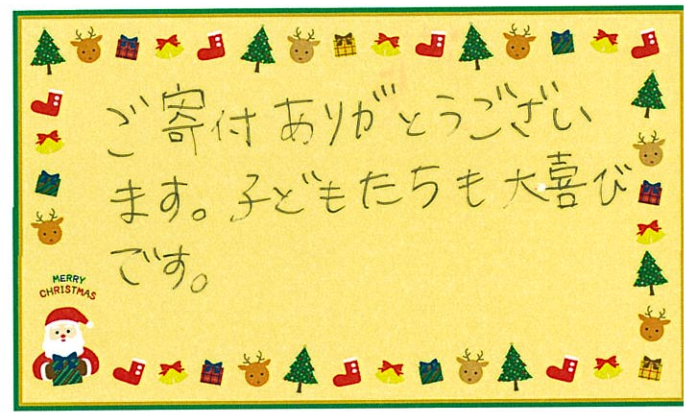 ご寄付ありがとうござい
ます。子どもたちも大喜び
です。
MERRY
CHRISTMAS